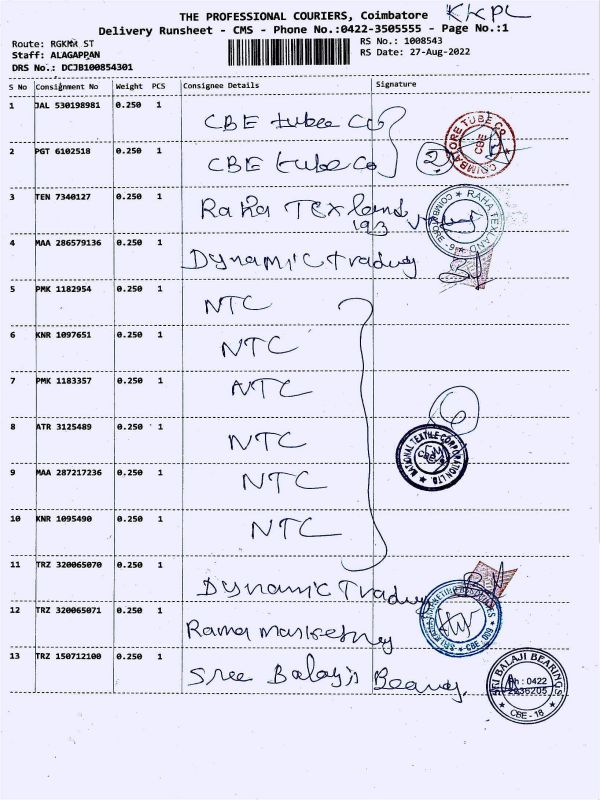 THE PROFESSIONAL COURIERS, Coimbatore KKPL
Delivery Runsheet - CMS - Phone No.:0422-3505555 - Page No.:1
Route: RGKMR ST
Staff: ALAGAPPAN
DRS No.: DCJB100854301
RS No.: 1008543
RS Date: 27-Aug-2022
S No Consignment No Weight PCS Consignee Details Signature
1 JAL 530198981 0.250 1 CBE tube Co
COIMBATORE TUBE CO. CBE
2 PGT 6102518 0.250 1 CBE tube Co 2
3 TEN 7340127 0.250 1 Raha Texland
193
RAHA TEXLAND COIMBATORE - 9
4 MAA 286579136 0.250 1 Dynamic trading
5 PMK 1182954 0.250 1 NTC
6 KNR 1097651 0.250 1 NTC
7 PMK 1183357 0.250 1 NTC
6
8 ATR 3125489 0.250 1 NTC
NATIONAL TEXTILE CORPORATION LTD. CBE
9 MAA 287217236 0.250 1 NTC
10 KNR 1095490 0.250 1 NTC
11 TRZ 320065070 0.250 1 Dynamic Trading
12 TRZ 320065071 0.250 1 Rama marketing
SRI RAMA MARKETING CBE - 009
13 TRZ 150712100 0.250 1 Sree Balaji Bearing
SRI BALAJI BEARINGS Ph : 0422 2236205 CBE - 18